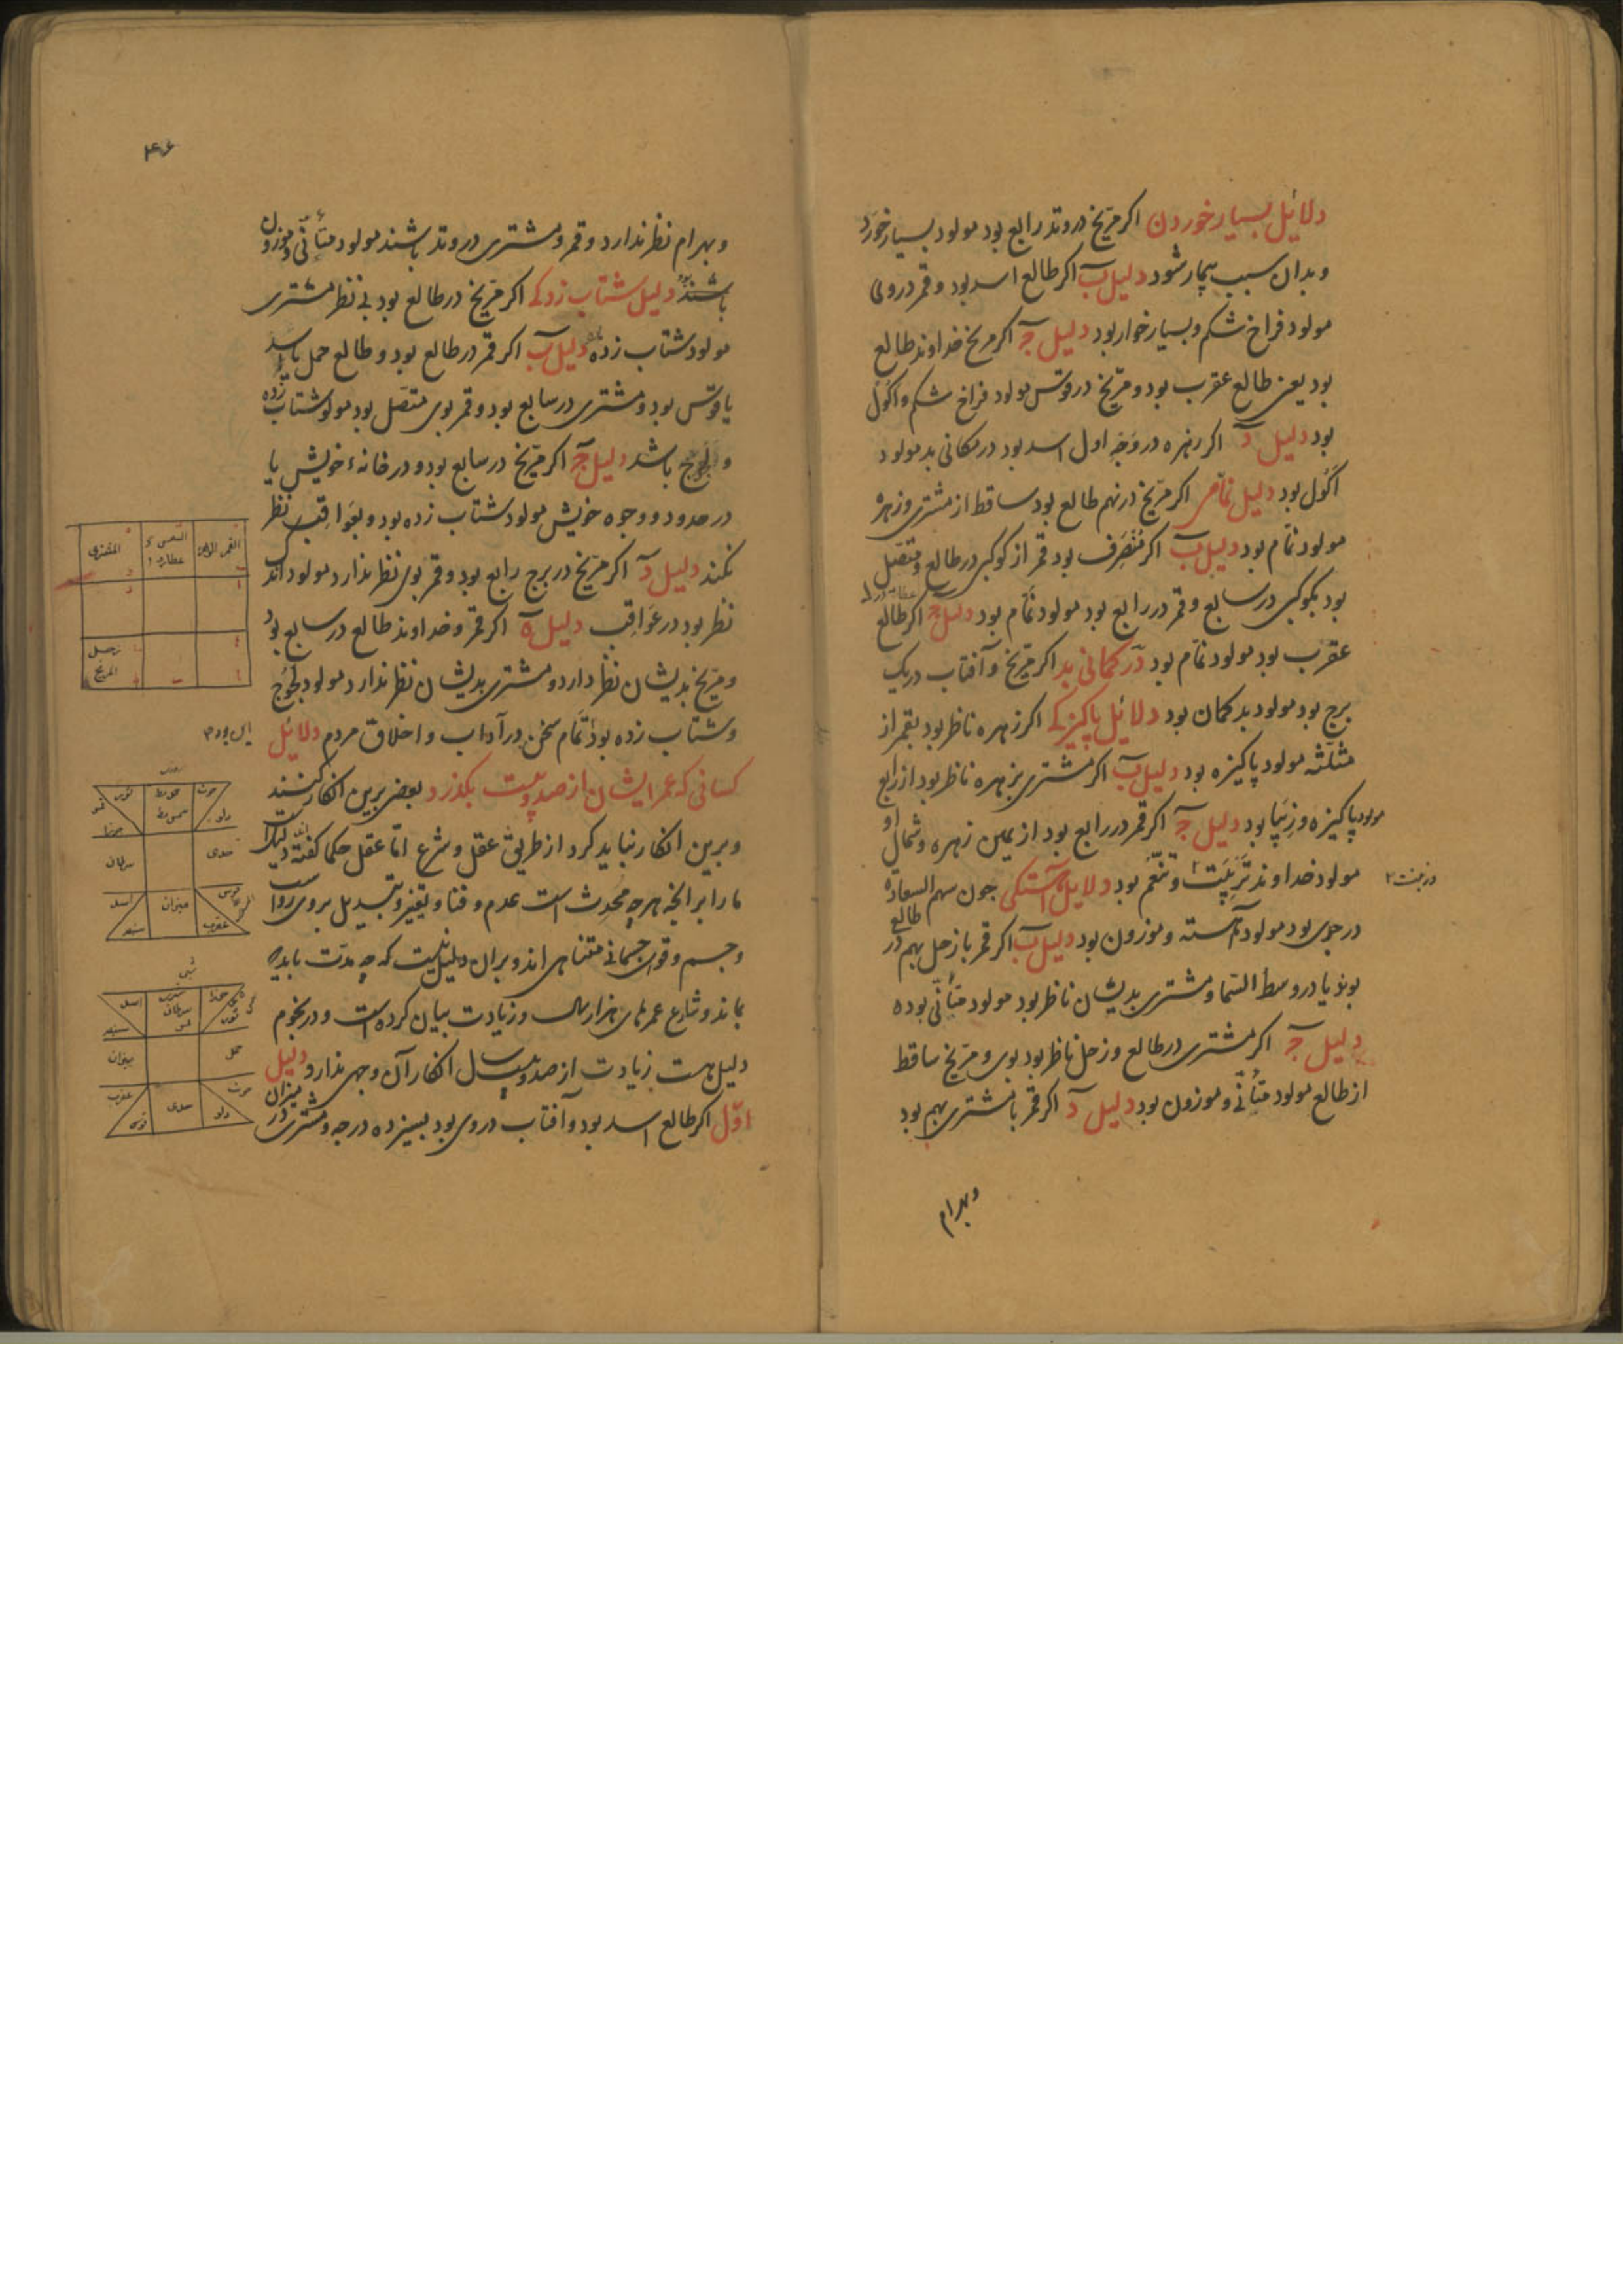 دلائل بسیار خوردن اکر مریخ در وتد رابع بود مولود بسیار خورد
و بدان سبب بیمار شود دلیل ب اکر طالع اسد بود و قمر در وی
مولود فراخ شکم و بسیار خوار بود دلیل ج اکر مریخ خداوند طالع
بود یعنی طالع عقرب بود و مریخ در قوس مولود فراخ شکم و اکول
بود دلیل د اکر زهره در وجه اول اسد بود در مکانی بد مولود
اکول بود دلیل نمامی اکر مریخ در نهم طالع بود ساقط از مشتری و زهره
مولود نمام بود دلیل ب اکر منصرف بود قمر از کوکبی در طالع و متصل
بود بکوکبی در سابع و قمر در رابع بود مولود نمام بود دلیل ج اکر طالع
عقرب بود مولود نمام بود در کمانی بد اکر مریخ و آفتاب در یک
برج بود مولود بد کمان بود دلائل پاکیزکی اکر زهره ناظر بود بقمر از
مثلثه مولود پاکیزه بود دلیل ب اکر مشتری بزهره ناظر بود از رابع
مولود پاکیزه و زیبا بود دلیل ج اکر قمر در رابع بود از یمین زهره و شمال او
مولود خداوند و تنعم بود دلایل آهستکی جون سهم السعاده
در جدی بود مولود آهسته و موزون بود دلیل ب اکر قمر با زحل بهم در طالع
بوند یا در وسط السما و مشتری بدیشان ناظر بود مولود متأنی بوده
دلیل ج اکر مشتری در طالع و زحل ناظر بود بوی و مریخ ساقط
از طالع مولود متأنی و موزون بود دلیل د اکر قمر با مشتری بهم بود
وبهرام
۴۶
و بهرام نظر ندارد و قمر و مشتری در وتد باشند مولود متأنی و موزون
باشند دلیل شتاب زدکی اکر مریخ در طالع بود بی نظر مشتری
مولود شتاب زده دلیل ب اکر قمر در طالع بود و طالع حمل یا اسد
یا قوس بود و مشتری در سابع بود و قمر بوی متصل بود مولود شتاب زده
و لجوج باشد دلیل ج اکر مریخ در سابع بود و در خانهٔ خویش یا
در حدود و وجوه خویش مولود شتاب زده بود و بعواقب نظر
نکند دلیل د اکر مریخ در برج رابع بود و قمر بوی نظر ندارد مولود اندک
نظر بود در عواقب دلیل ه اکر قمر و خداوند طالع در سابع بود
و مریخ بدیشان نظر دارد و مشتری بدیشان نظر ندارد مولود لجوج
و شتاب زده بود تمام سخن در آداب و اخلاق مردم دلائل
کسانی که عمر ایشان از صد و بیست بکذرد بعضی برین انکار کنند
و برین انکار نباید کرد از طریق عقل و شرع اما عقل حکما کفته اند
ما را بر آنج هر چه محدث است عدم و فنا و تغییر و تبدیل بر وی رواست
و جسم و قوای جسمانی متناهی اند و بران دلیل نیست که چه مدت باید که
بماند و شارع عمرهای هزار سال و زیادت بیان کرده است و در نجوم
دلیل هست زیادت از صد و بیست سال انکار آن وجهی ندارد دلیل
اول اکر طالع اسد بود و آفتاب در وی بود بسیزده درجه و مشتری در میزان
المشتری
زحل
المریخ
حوت
دلو
جدی
قوس
عقرب
میزان
سنبله
اسد
سرطان
جوزا
ثور
اسد
سنبله
میزان
عقرب
قوس
جدی
دلو
حوت
حمل
ثور